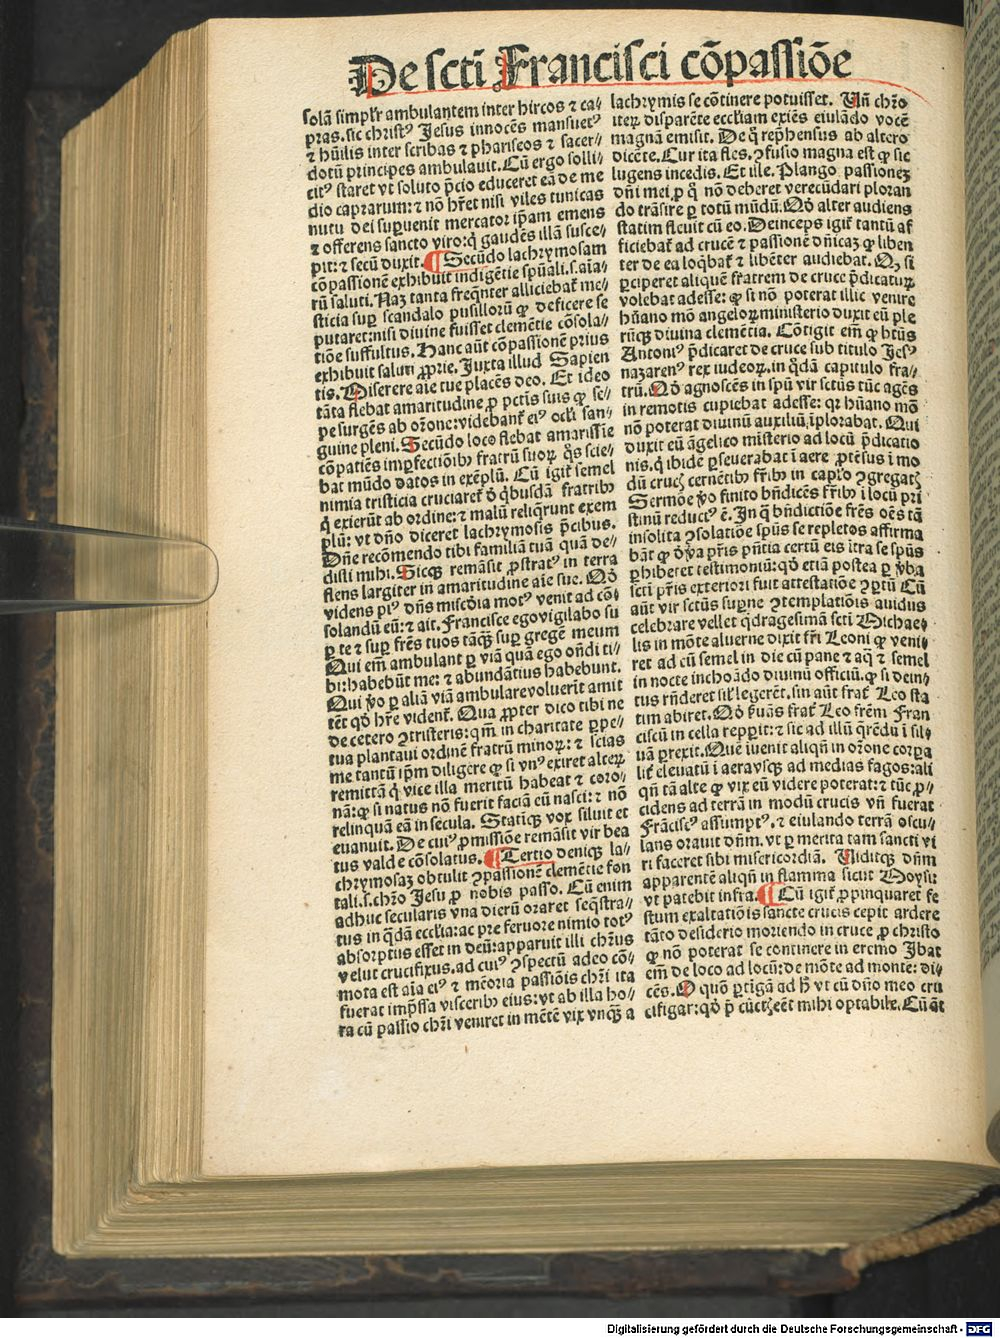 De scti Francisci cōpassiōe
solā simplr̄ ambulantem inter hircos ⁊ ca⸗
pras. sic christꝰ Jesus innocēs mansuetꝰ
⁊ hūilis inter scribas ⁊ phariseos ⁊ sacer⸗
dotū principes ambulauit. Cū ergo solli⸗
citꝰ staret vt soluto p̄cio educeret eā de me
dio caprarum: ⁊ nō hr̄et nisi viles tunicas
nutu dei suꝑuenit mercator ip̄am emens
⁊ offerens sancto viro: q̄ gaudēs illā susce⸗
pit: ⁊ secū duxit. ¶ Secūdo lachrymosam
cōpassionē exhibuit indigētie spūali. s. aīa⸗
rū saluti. Naꝫ tanta freq̄nter alliciebat̄ me⸗
sticia suꝑ scandalo pusillorū ꝙ deficere se
putaret: nisi diuine fuisset clemētie cōsola⸗
tiōe suffultus. Hanc aūt cōpassionē prius
exhibuit saluti ꝓprie. Juxta illud Sapien
tis. Miserere aīe tue placēs deo. Et ideo
tāta flebat amaritudine ꝓ pctīs suis ꝙ se⸗
pe surgēs ab or̄one: videbant̄ eiꝰ oc̄li san⸗
guine pleni. Secūdo loco flebat amarissīe
cōpatiēs imꝑfectiōibꝫ fratrū suoꝝ q̄s scie⸗
bat mūdo datos in exēplū. Cū igit̄ semel
nimia tristicia cruciaret̄ ꝺ̄ q̇busdā fratribꝫ
q̇ exierūt ab ordine: ⁊ malū reliq̄runt exem
plū: vt dn̄o diceret lachrymosis p̄cibus.
Dn̄e recōmendo tibi familiā tuā quā de⸗
disti mihi. Sicqꝫ remāsit ꝓstratꝰ in terra
flens largiter in amaritudine aīe sue. Qō
videns piꝰ dn̄s miscd̄ia motꝰ venit ad cō⸗
solandū eū: ⁊ ait. Francisce ego vigilabo su
ꝑ te ⁊ suꝑ frēs tuos tāqꝫ suꝑ gregē meum
Qui em̄ ambulant ꝑ viā quā ego on̄di ti⸗
bi: habebūt me: ⁊ abundātius habebunt.
Qui v̄o ꝑ aliā viā ambulare voluerīt amit
tēt qō hr̄e vident̄. Qua ꝓpter dico tibi ne
de cetero ꝯtristeris: qm̄ in charitate ꝑpe⸗
tua plantaui ordinē fratrū minoꝝ: ⁊ scias
me tantū ip̄m diligere ꝙ si vnꝰ exiret alteꝝ
remittā q̇ vice illa meritū habeat ⁊ coro⸗
nā: ꝙ si natus nō fuerit faciā eū nasci: ⁊ nō
relinquā eā in secula. Statiqꝫ vox siluit et
euanuit. De cuiꝰ ꝓmissiōe remāsit vir bea
tus valde cōsolatus. ¶ Tertio deniqꝫ la⸗
chrymosaꝫ obtulit ꝯpassionē clemētie fon
tali. s. chr̄o Jesu ꝓ nobis passo. Cū enim
adhuc secularis vna dierū oraret seq̄stra⸗
tus in q̄dā ecclīa: ac pre feruore nimio totꝰ
absorptus esset in deū: apparuit illi chr̄us
velut crucifixus. ad cuiꝰ ꝯspectū adeo cō⸗
mota est aīa eiꝰ ⁊ mēoria passiōis chr̄i ita
fuerat imp̄ssa visceribꝫ eius: vt ab illa ho⸗
ra cū passio chr̄i veniret in mētē vix vnqꝫ a
lachrymis se cōtinere potuisset. Vn̄ chr̄o
iteꝝ disparēte eccliam exiēs eiulādo vocē
magnā emisit. De q̄ rep̄hensus ab altero
dicēte. Cur ita fles. ꝯfusio magna est ꝙ sic
lugens incedis. Et ille. Plango passioneꝫ
dn̄i mei, ꝓ q̄ nō deberet verecūdari ploran
do trāsire ꝑ totū mūdū. Qō alter audiens
statim fleuit cū eo. Deinceps igit̄ tantū af
ficiebat̄ ad crucē ⁊ passionē dn̄icaꝫ ꝙ liben
ter de ea loq̄bat̄ ⁊ libēter audiebat. Qꝫ si
ꝑciperet aliquē fratrem de cruce p̄dicaturꝫ
volebat adesse: ꝙ si nō poterat illic venire
hūano mō angeloꝝ ministerio duxit eū ple
rūqꝫ diuina clemētia. Cōtigit em̄ ꝙ btūs
Antoniꝰ p̄dicaret de cruce sub titulo Jesꝰ
nazarenꝰ rex iudeoꝝ. in q̄dā capitulo fra⸗
trū. Qō agnoscēs in spū vir sctūs tūc agēs
in remotis cupiebat adesse: qꝛ hūano mō
nō poterat diuinū auxiliū īplorabat. Qui
duxit eū āgelico mīsterio ad locū p̄dicatio
nis. q̇ ibidē ꝑseuerabat ī aere ꝓtēsus ī mo
dū crucꝭ cernētibꝫ fr̄ibꝫ in capl̄o ꝯgregatꝭ
Sermōe v̄o finito bn̄dicēs fr̄ibꝫ ī locū pri
stinū reductꝰ ē. Jn q̄ bn̄dictiōe frēs oēs tā
insolita ꝯsolatiōe spūs se repletos affirma
bāt ꝙ ꝺ̄ v̄a pr̄is pn̄tia certū eis ītra se spūs
ꝑhiberet testimoniū: qō etiā postea ꝑ v̄ba
scti pr̄is exteriori fuit attestatiōe ꝯꝑtū Cū
aūt vir sctūs supne ꝯtemplatiōis auidus
celebrare vellet q̄dragesimā scti Michae⸗
lis in mōte aluerne dixit fr̄i Leoni ꝙ veni⸗
ret ad cū semel in die cū pane ⁊ aq̄ ⁊ semel
in nocte inchoādo diuinū officiū. ꝙ si dein⸗
tus rn̄deret sil̄ legerēt. sin aūt frat̄ Leo sta
tim abiret. Qō ẜuās frat̄ Leo frēm Fran
ciscū in cella repꝑit: ⁊ sic ad illū q̄rēdū ī sil⸗
uā ꝑrexit. Quē īuenit aliqn̄ in or̄one corpa
lit̄ eleuatū ī aera vsqꝫ ad medias fagos: ali
qn̄ tā alte ꝙ vix eū videre poterat: ⁊ tūc ꝓ⸗
cidens ad terrā in modū crucis vn̄ fuerat
Frāciscꝰ assumptꝰ, ⁊ eiulando terrā oscu⸗
lans orauit dn̄m. vt ꝑ merita tam sancti vi
ri faceret sibi misericordiā. Viditqꝫ dn̄m
apparentē aliqn̄ in flamma sicut Moysi:
vt patebit infra. ¶ Cū igit̄ ꝓpinquaret fe
stum exaltatiōis sancte crucis cepit ardere
tāto desiderio moriendo in cruce ꝓ christo
ꝙ nō poterat se continere in eremo Jbat
em̄ de loco ad locū: de mōte ad monte: di⸗
cēs. O quō ꝑtigā ad h̄ vt cū dn̄o meo cru
cifigar: qō p̄ cūctꝭ eēt mihi optabile. Cū āt
Digitalisierung gefördert durch die Deutsche Forschungsgemeinschaft - DFG